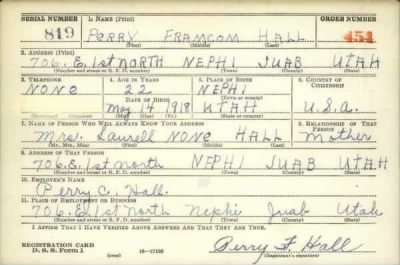 SERIAL NUMBER 1. NAME (Print) ORDER NUMBER
819 PERRY FRAMCOM HALL 451
(First) (Middle) (Last)
2. ADDRESS (Print)
706. E. 1st NORTH NEPHI JUAB UTAH
(Number and street or R. F. D. number) (Town) (County) (State)
3. TELEPHONE 4. AGE IN YEARS 5. PLACE OF BIRTH 6. COUNTRY OF CITIZENSHIP
NONE 22 NEPHI
DATE OF BIRTH (Town or county)
May 14 1918 UTAH U.S.A.
(Exchange) (Number) (Mo.) (Day) (Yr.) (State or country)
7. NAME OF PERSON WHO WILL ALWAYS KNOW YOUR ADDRESS 8. RELATIONSHIP OF THAT PERSON
Mrs. Laurell NONE HALL Mother
(Mr., Mrs., Miss) (First) (Middle) (Last)
9. ADDRESS OF THAT PERSON
706. E. 1st NORTH NEPHI JUAB UTAH
(Number and street or R. F. D. number) (Town) (County) (State)
10. EMPLOYER'S NAME
Perry C. Hall.
11. PLACE OF EMPLOYMENT OR BUSINESS
706. E. 1st North Nephi Juab Utah
(Number and street or R. F. D. number) (Town) (County) (State)
I AFFIRM THAT I HAVE VERIFIED ABOVE ANSWERS AND THAT THEY ARE TRUE.
REGISTRATION CARD
D. S. S. Form 1 (over) 16—17105 Perry F. Hall
(Registrant's signature)